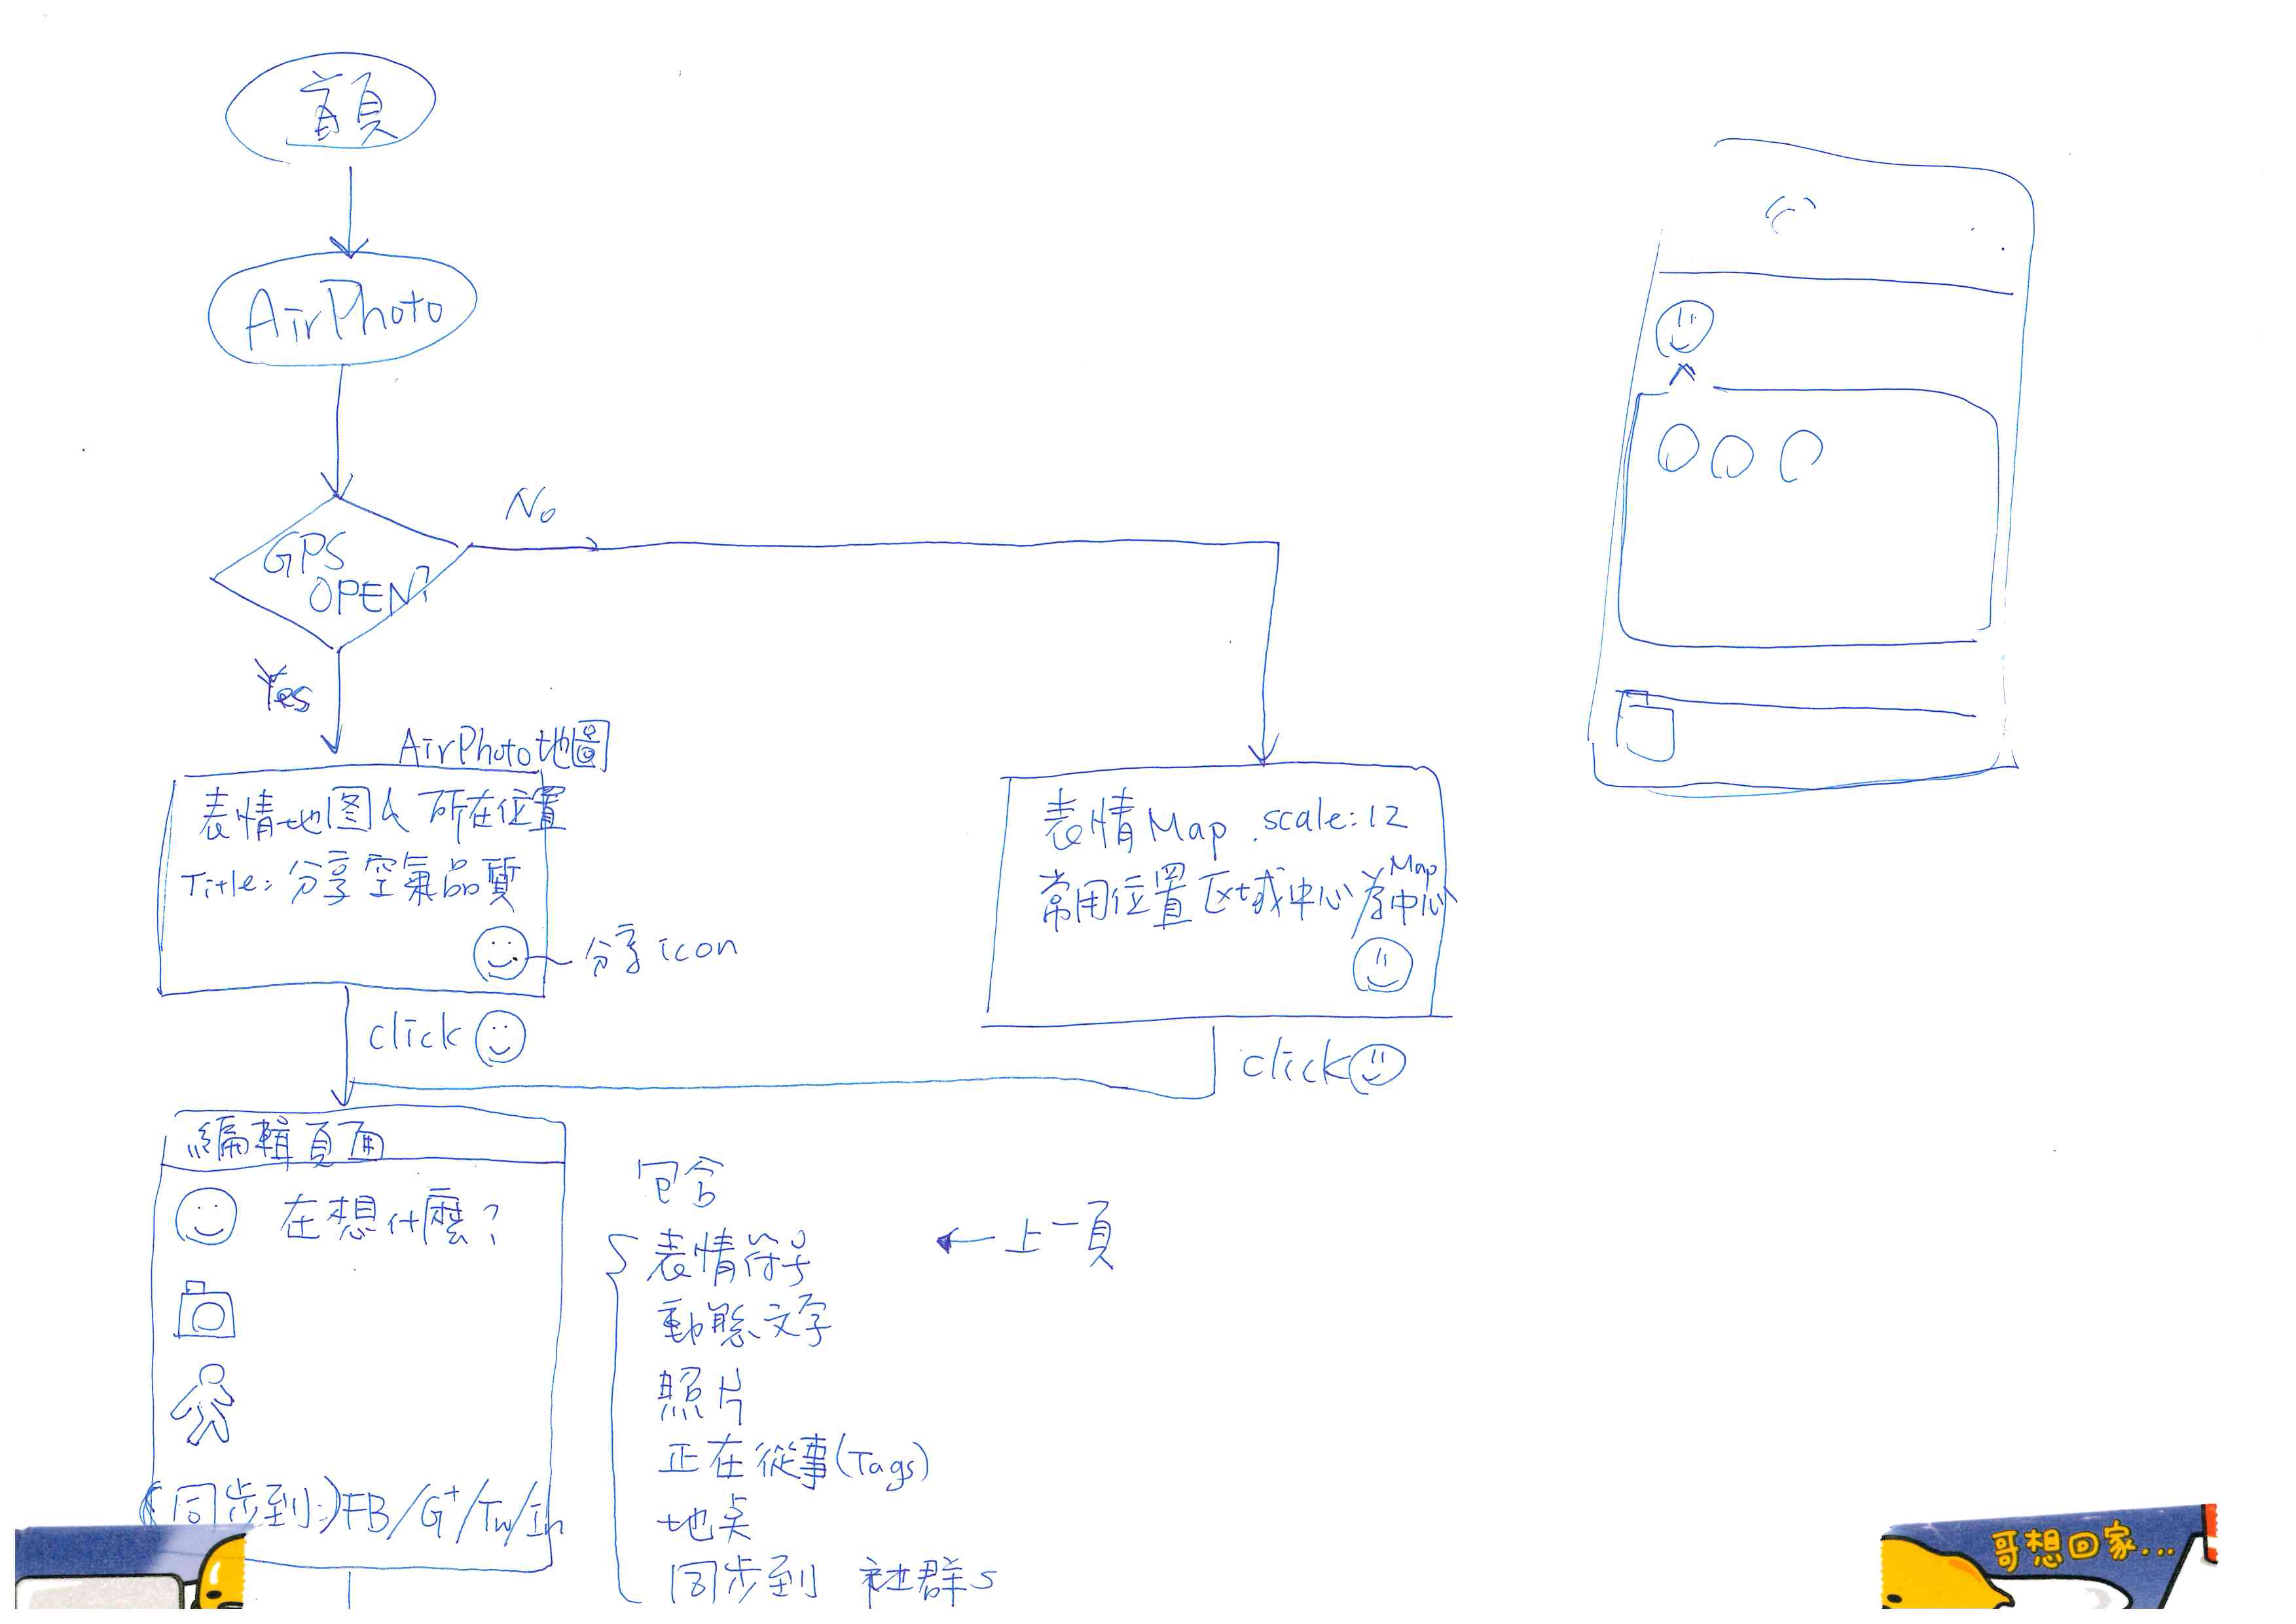 首頁
AirPhoto
GPS
OPEN?
No
Yes
AirPhoto地圖
表情地图 所在位置
Title: 分享空氣品質
分享icon
click
表情Map .scale:12
常用位置区域中心為Map中心
click
編輯頁面
在想什麼?
(同步到:)FB/G+/Tw/In
包含
表情符号
動態文字
照片
正在從事(Tags)
地点
同步到 社群s
←上一頁
哥想回家...